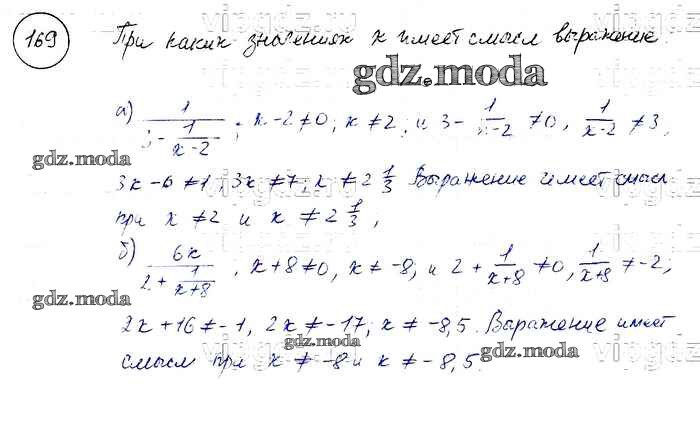 169 При каких значениях x имеет смысл выражение
gdz.moda
а) 1/(3 - 1/(x-2)); x-2≠0; x≠2; и 3 - 1/(x-2) ≠0, 1/(x-2) ≠3,
gdz.moda
3x-6≠1; 3x≠7; x≠2 1/3 Выражение имеет смысл
при x≠2 и x≠2 1/3,
gdz.moda
б) 6x/(2 + 1/(x+8)), x+8≠0, x≠-8; и 2 + 1/(x+8) ≠0, 1/(x+8) ≠-2;
gdz.moda
2x+16≠-1, 2x≠-17; x≠-8,5. Выражение имеет
gdz.moda
смысл при x≠-8 и x≠-8,5.